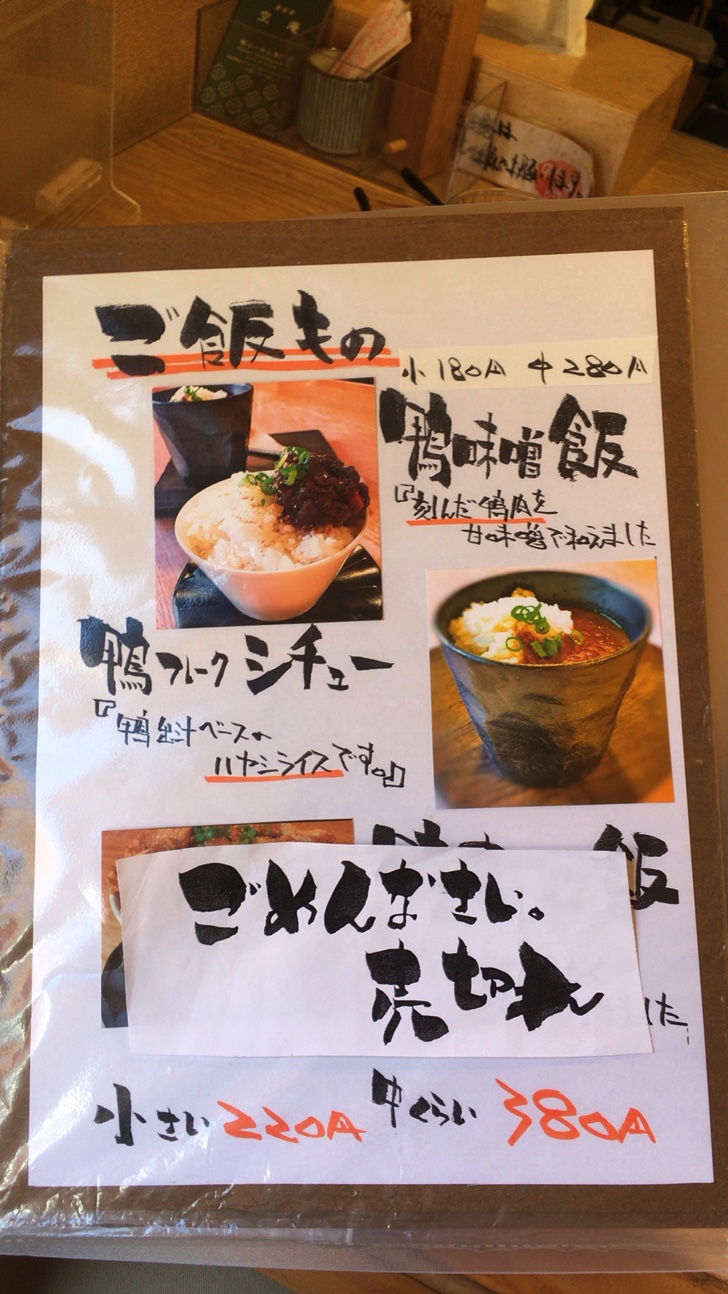 ご飯もの
小180円 中280円
鴨味噌飯
『刻んだ鴨肉を
甘味噌で和えました
鴨フレーク シチュー
『鴨出汁ベースの
ハヤシライスです。』
飯
ごめんなさい。
売切れ
した
小さい 220円 中くらい 380円